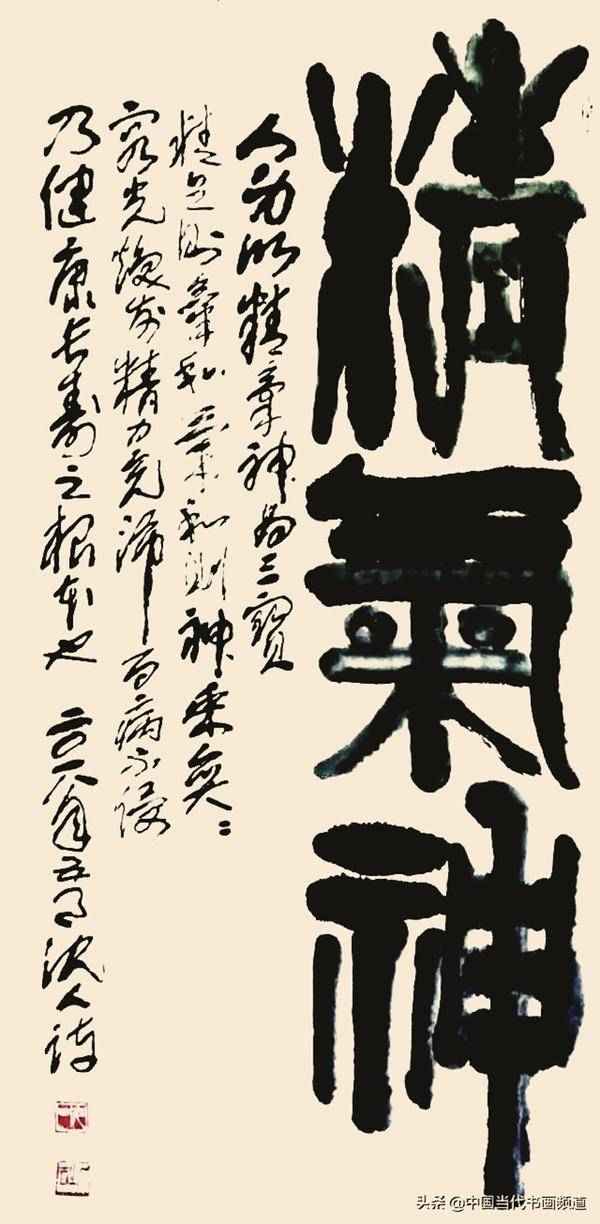 精氣神
人身以精氣神为三寶
精足则氣和氣和则神采奕々
容光焕发精力充沛百病不侵
乃健康長壽之根本也 二〇一八年五月沈人
头条 @中国当代书画频道